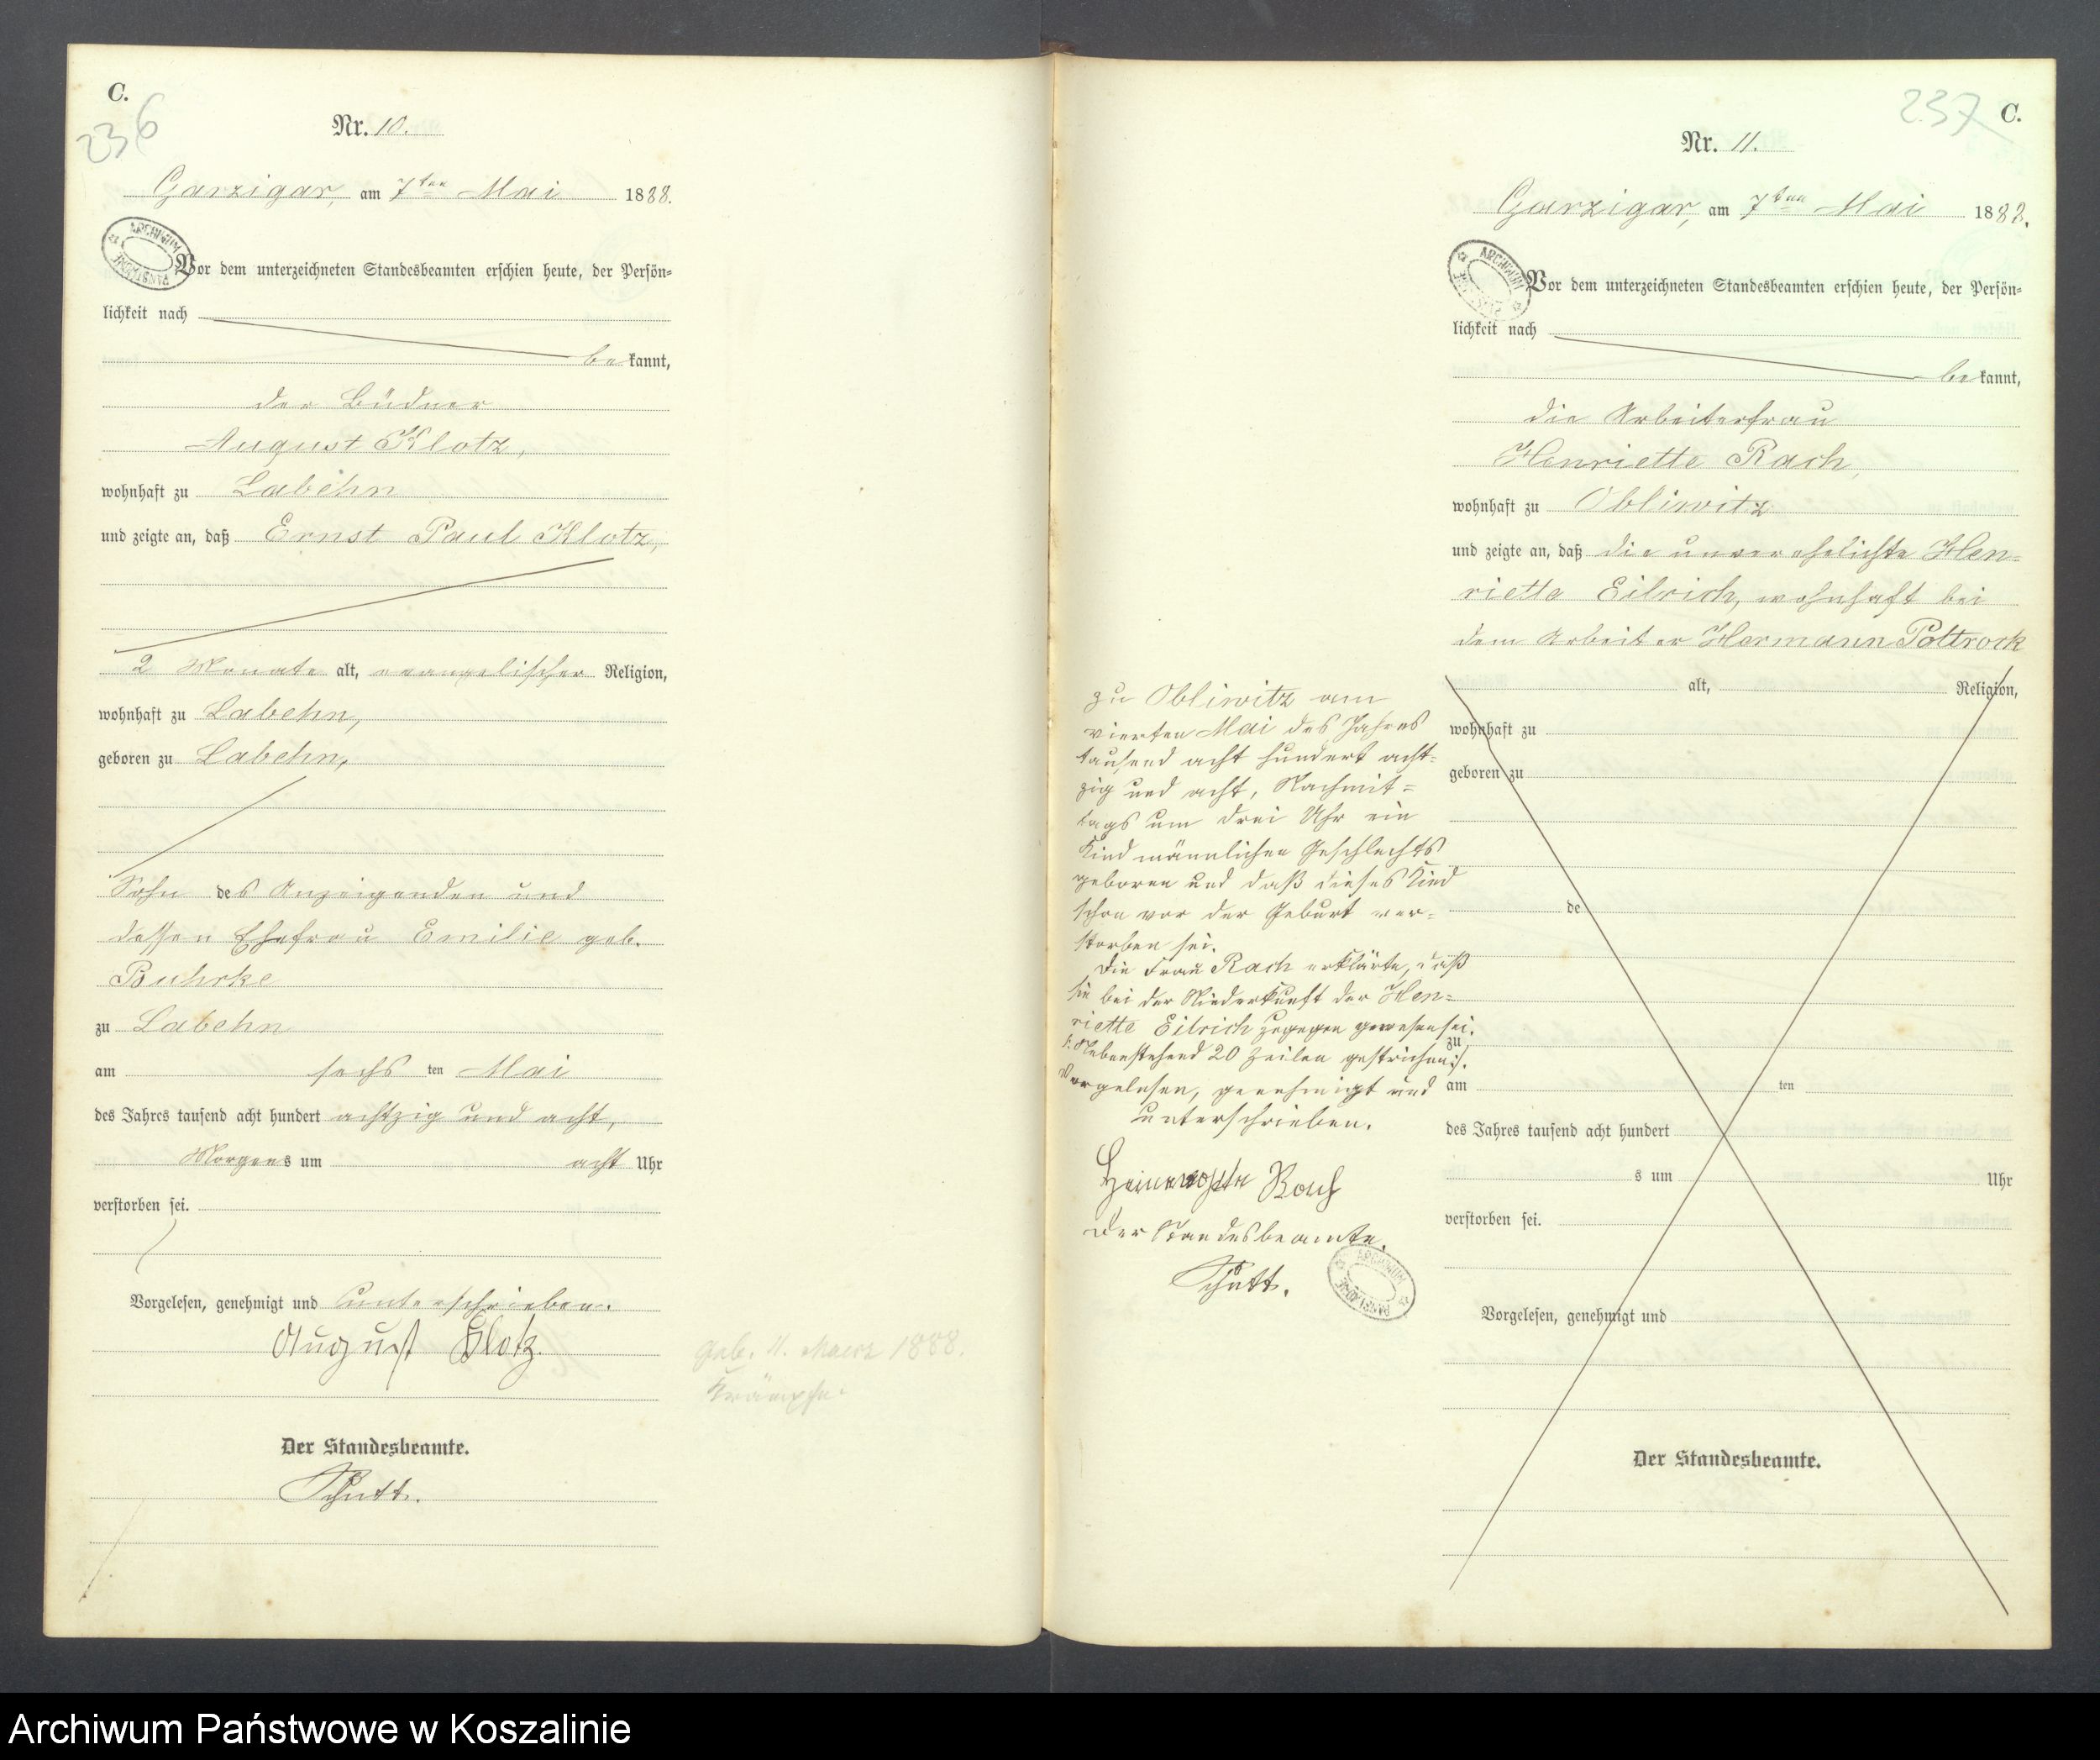 C.
236
Nr. 10.
Garzigar, am 7ten Mai 1888.
ARCHIWUM PAŃSTWOWE
Vor dem unterzeichneten Standesbeamten erschien heute, der Persön-
lichkeit nach
bekannt,
der Büdner
August Klotz,
wohnhaft zu Labehn
und zeigte an, daß Ernst Paul Klotz,
2 Monate alt, evangelischer Religion,
wohnhaft zu Labehn,
geboren zu Labehn,
Sohn des Anzeigenden und
dessen Ehefrau Emilie geb.
Buhrke
zu Labehn
am sechs ten Mai
des Jahres tausend acht hundert achtzig und acht,
Morgens um acht Uhr
verstorben sei.
Vorgelesen, genehmigt und unterschrieben.
August Klotz.
Der Standesbeamte.
Schutt.
geb. 11. Maerz 1888.
Krämpfe.
237 C.
Nr. 11.
Garzigar, am 7ten Mai 1888.
ARCHIWUM
Vor dem unterzeichneten Standesbeamten erschien heute, der Persön-
lichkeit nach
bekannt,
die Arbeiterfrau
Henriette Rach,
wohnhaft zu Obliwitz
und zeigte an, daß die unverehelichte Hen-
riette Eilrich, wohnhaft bei
dem Arbeiter Hermann Pottrock
zu Obliwitz am
vierten Mai des Jahres
tausend acht hundert acht-
zig und acht, Nachmit-
tags um drei Uhr ein
Kind männlichen Geschlechts
geboren und daß dieses Kind
schon vor der Geburt ver-
storben sei.
Die Frau Rach erklärte, daß
sie bei der Niederkunft der Hen-
riette Eilrich zugegen gewesen sei.
/: Nebenstehend 20 Zeilen gestrichen :/.
Vorgelesen, genehmigt und
unterschrieben.
Rach
Der Standesbeamte.
Schutt.
ARCHIWUM PAŃSTWOWE
alt, Religion,
wohnhaft zu
geboren zu
de
zu
am ten
des Jahres tausend acht hundert
s um Uhr
verstorben sei.
Vorgelesen, genehmigt und
Der Standesbeamte.
Archiwum Państwowe w Koszalinie